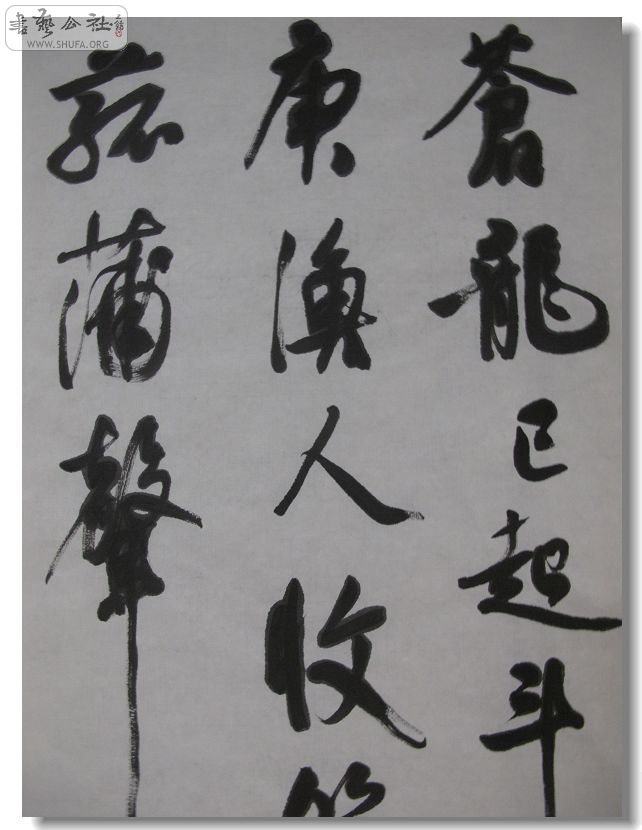 蒼龍已起斗
庚漁人收
菰蒲聲
書藝公社
WWW.SHUFA.ORG